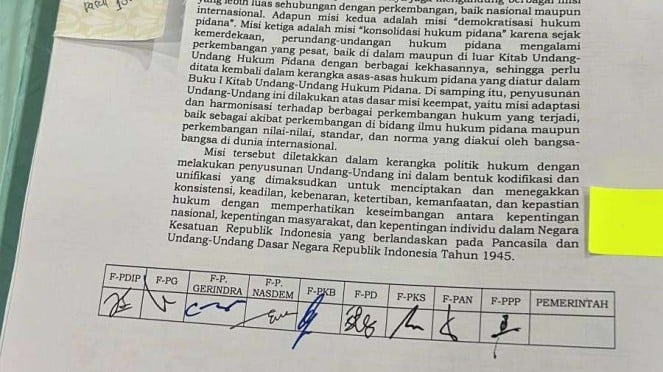 yang lebih luas sehubungan dengan perkembangan, baik nasional maupun
internasional. Adapun misi kedua adalah misi “demokratisasi hukum
pidana”. Misi ketiga adalah misi “konsolidasi hukum pidana” karena sejak
kemerdekaan, perundang-undangan hukum pidana mengalami
perkembangan yang pesat, baik di dalam maupun di luar Kitab Undang-
Undang Hukum Pidana dengan berbagai kekhasannya, sehingga perlu
ditata kembali dalam kerangka asas-asas hukum pidana yang diatur dalam
Buku I Kitab Undang-Undang Hukum Pidana. Di samping itu, penyusunan
Undang-Undang ini dilakukan atas dasar misi keempat, yaitu misi adaptasi
dan harmonisasi terhadap berbagai perkembangan hukum yang terjadi,
baik sebagai akibat perkembangan di bidang ilmu hukum pidana maupun
perkembangan nilai-nilai, standar, dan norma yang diakui oleh bangsa-
bangsa di dunia internasional.
Misi tersebut diletakkan dalam kerangka politik hukum dengan
melakukan penyusunan Undang-Undang ini dalam bentuk kodifikasi dan
unifikasi yang dimaksudkan untuk menciptakan dan menegakkan
konsistensi, keadilan, kebenaran, ketertiban, kemanfaatan, dan kepastian
hukum dengan memperhatikan keseimbangan antara kepentingan
nasional, kepentingan masyarakat, dan kepentingan individu dalam Negara
Kesatuan Republik Indonesia yang berlandaskan pada Pancasila dan
Undang-Undang Dasar Negara Republik Indonesia Tahun 1945.
F-PDIP F-PG F-P. GERINDRA F-P. NASDEM F-PKB F-PD F-PKS F-PAN F-PPP PEMERINTAH